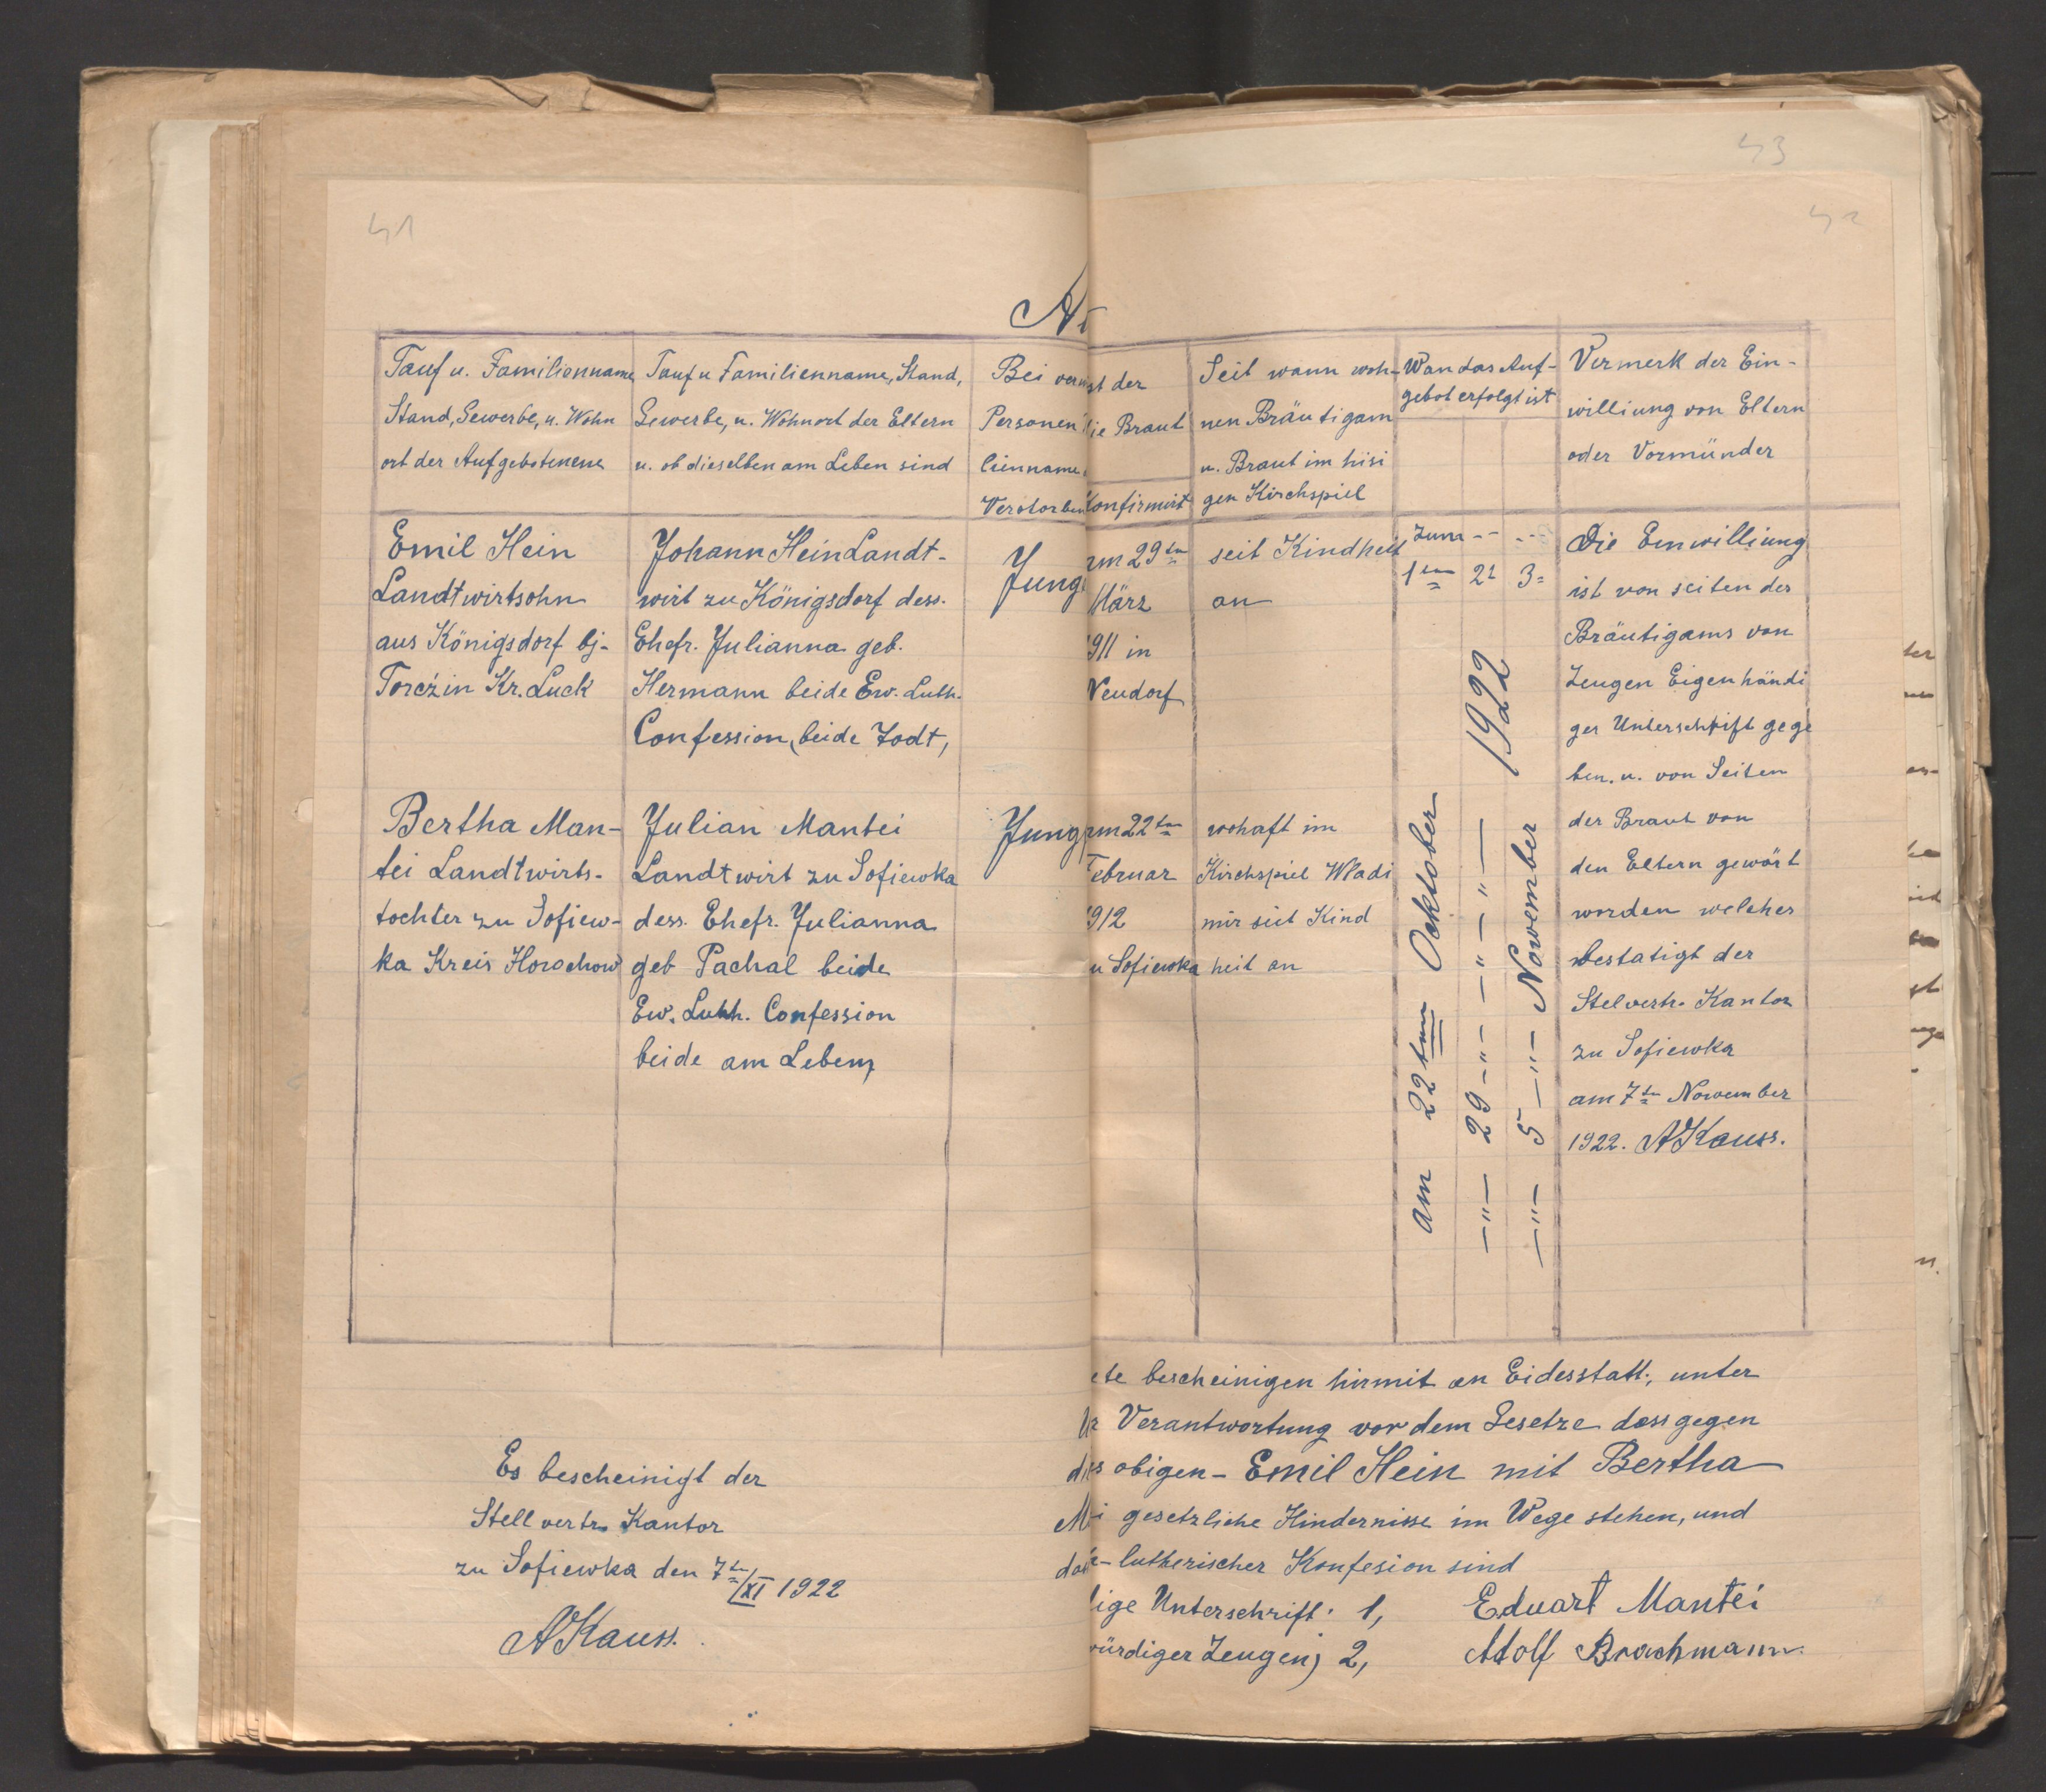 41
43
42
Tauf u. Familienname
Stand, Gewerbe, u. Wohn
ort der Aufgebotenene
Tauf u Familienname, Stand,
Gewerbe, u. Wohnort der Eltern
u. ob dieselben am Leben sind
Bei
Personen
lienname
Verstorben
st der
die Braut
Konfirmirt
Seit wann woh-
nen Bräutigam
u. Braut im hisi
gen Kirchspiel
Wan das Auf-
gebot erfolgt ist
Vermerk der Ein-
williung von Eltern
oder Vormünder
Emil Hein
Landtwirtsohn
aus Königsdorf bj-
Torczin Kr. Luck
Johann Hein Landt-
wirt zu Königsdorf dess.
Ehefr. Julianna geb.
Hermann beide Ew. Luth.
Confession, beide Todt,
Jung
am 29tn
März
1911 in
Neudorf
seit Kindheit
an
zum -- ---
1tn 2t 3=
Die Einwilliung
ist von seiten der
Bräutigams von
Zeugen Eigenhändi
ger Unterschrift gege
ben. u. von Seiten
der Braut von
den Eltern gewärt
worden welches
bestatigt der
Stelvertr. Kantor
zu Sofiewka
am 7tn Nowember
1922. AKauss.
Bertha Man-
tei Landtwirts-
tochter zu Sofiew-
ka Kreis Horochow
Julian Mantei
Landtwirt zu Sofiewka
dess. Ehefr. Julianna
geb Pachal beide
Ew. Luth. Confession
beide am Leben,
Jung
am 22tn
Februar
1912
zu Sofiewka
wohaft im
Kirchspiel Wladi
mir seit Kind
heit an
am 22ten Ocktober
—"— 29 —"— —"—"— 1922
—"— 5 —"— Nowember
Es bescheinigt der
Stellvertr. Kantor
zu Sofiewka den 7tn/XI 1922
AKauss.
ete bescheinigen hirmit an Eidesstatt, unter
Verantwortung vor dem Gesetze dass gegen
des obigen - Emil Hein mit Bertha
gesetzliche Hindernisse im Wege stehen, und
- lutherischer Konfesion sind
lige Unterschrift: 1, Eduart Mantei
würdiger Zeugen) 2, Adolf Brachmann.